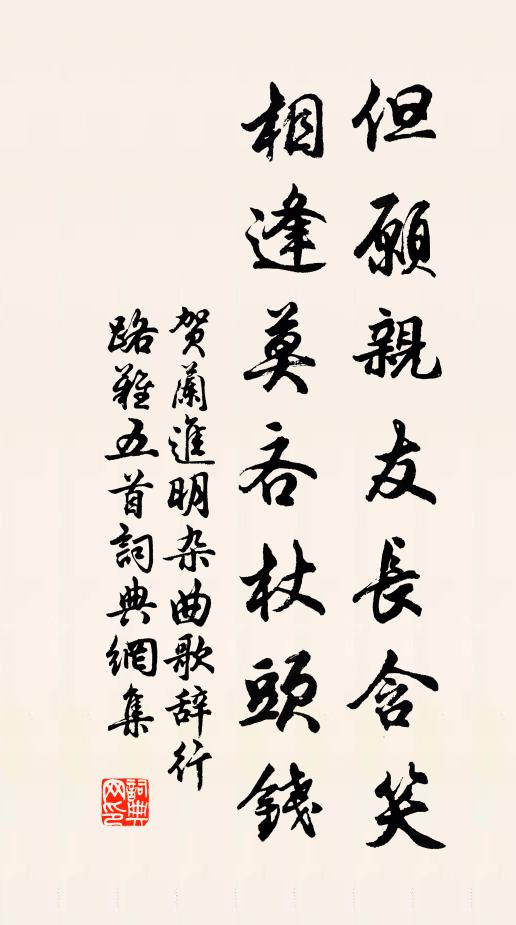 但願親友長含笑
相逢莫吝杖頭錢
贺蘭進明杂曲歌辞行
路難五首詞典網集
詞典网印